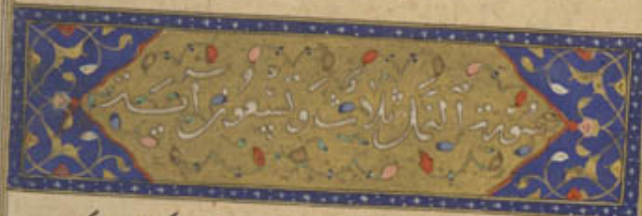 سورة النمل ثلاث وتسعون آية